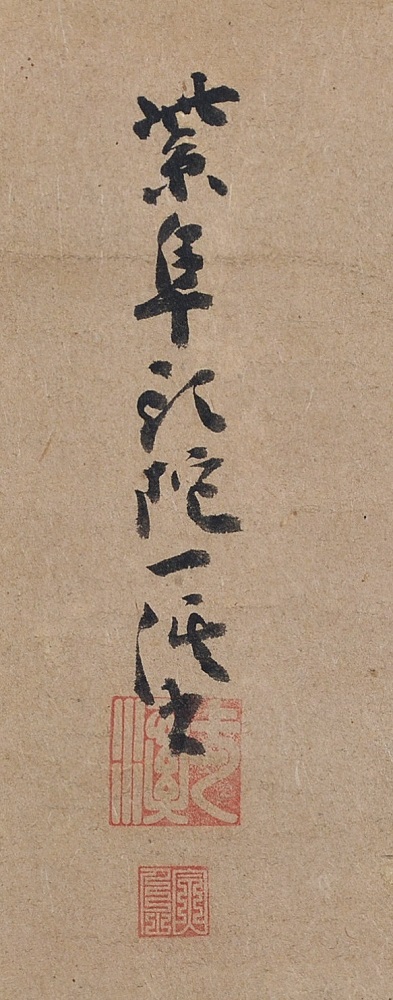 紫阜頭陀一溪書